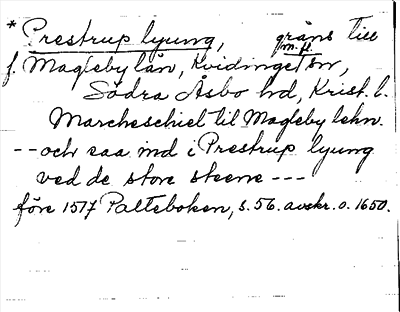 * Prestrup lyung, gräns till
f. Magleby län, Kvidinge sn m.fl.,
Södra Åsbo hd, Krist. l.
Marcheschiel til Magleby lehn.
-- och saa ind i Prestrup lyung
ved de store steene ---
före 1517 Palteboken, s. 56. avskr. o. 1650.